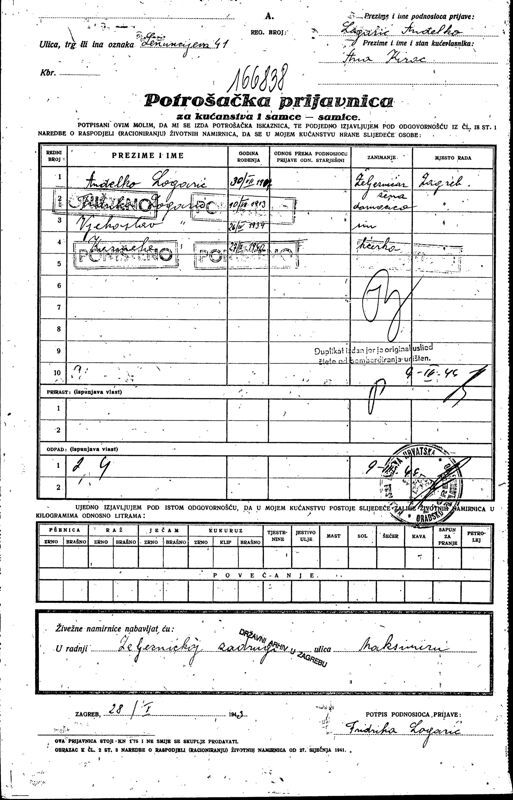 A.
REG. BROJ:
Prezime i ime podnosioca prijave:
Logarić Anđelko
Ulica, trg ili ina oznaka 41
Prezime i ime i stan kućevlasnika:
Ana
Kbr.
166838
Potrošačka prijavnica
za kućanstva i samce — samice.
POTPISANI OVIM MOLIM, DA MI SE IZDA POTROŠAČKA ISKAZNICA, TE PODJEDNO IZJAVLJUJEM POD ODGOVORNOŠĆU IZ ČL. 18 ST. 1
NAREDBE O RASPODJELI (RACIONIRANJU) ŽIVOTNIH NAMIRNICA, DA SE U MOJEM KUĆANSTVU HRANE SLIJEDEĆE OSOBE:
REDNI BROJ PREZIME I IME GODINA ROĐENJA ODNOS PREMA PODNOSIOCU PRIJAVE ODN. STARJEŠINI ZANIMANJE MJESTO RADA
1 Anđelko Logarić Željezničar Zagreb
2 Logarić 1913 žena domaćica
PONIŠTENO
3 Vjekoslav " 1934 sin
4 kćerka
PONIŠTENO
5
6
7
8
9 Duplikat izdan jer je original uslied
štete od bombardiranja uništen.
10
PRIRAST: (ispunjava vlast)
1
2
ODPAD: (ispunjava vlast)
1
2
UJEDNO IZJAVLJUJEM POD ISTOM ODGOVORNOŠĆU, DA U MOJEM KUĆANSTVU POSTOJE SLIJEDEĆE ZALIHE ŽIVOTNIH NAMIRNICA U
KILOGRAMIMA ODNOSNO LITRAMA:
PŠENICA RAŽ JEČAM KUKURUZ TJESTENINE JESTIVO ULJE MAST SOL ŠEĆER KAVA SAPUN ZA PRANJE PETROLEJ
ZRNO BRAŠNO ZRNO BRAŠNO ZRNO BRAŠNO ZRNO KLIP BRAŠNO
POVEĆANJE
Živežne namirnice nabavljat ću:
U radnji Željezničkoj zadruzi ulica Maksimiru
DRŽAVNI ARHIV U ZAGREBU
ZAGREB, 28/I 1943
POTPIS PODNOSIOCA PRIJAVE:
Fridrika Logarić
OVA PRIJAVNICA STOJI KN 1.75 I NE SMIJE SE SKUPLJE PRODAVATI.
OBRAZAC K ČL. 2 ST. 2 NAREDBE O RASPODJELI (RACIONIRANJU) ŽIVOTNIH NAMIRNICA OD 27. SIJEČNJA 1941.